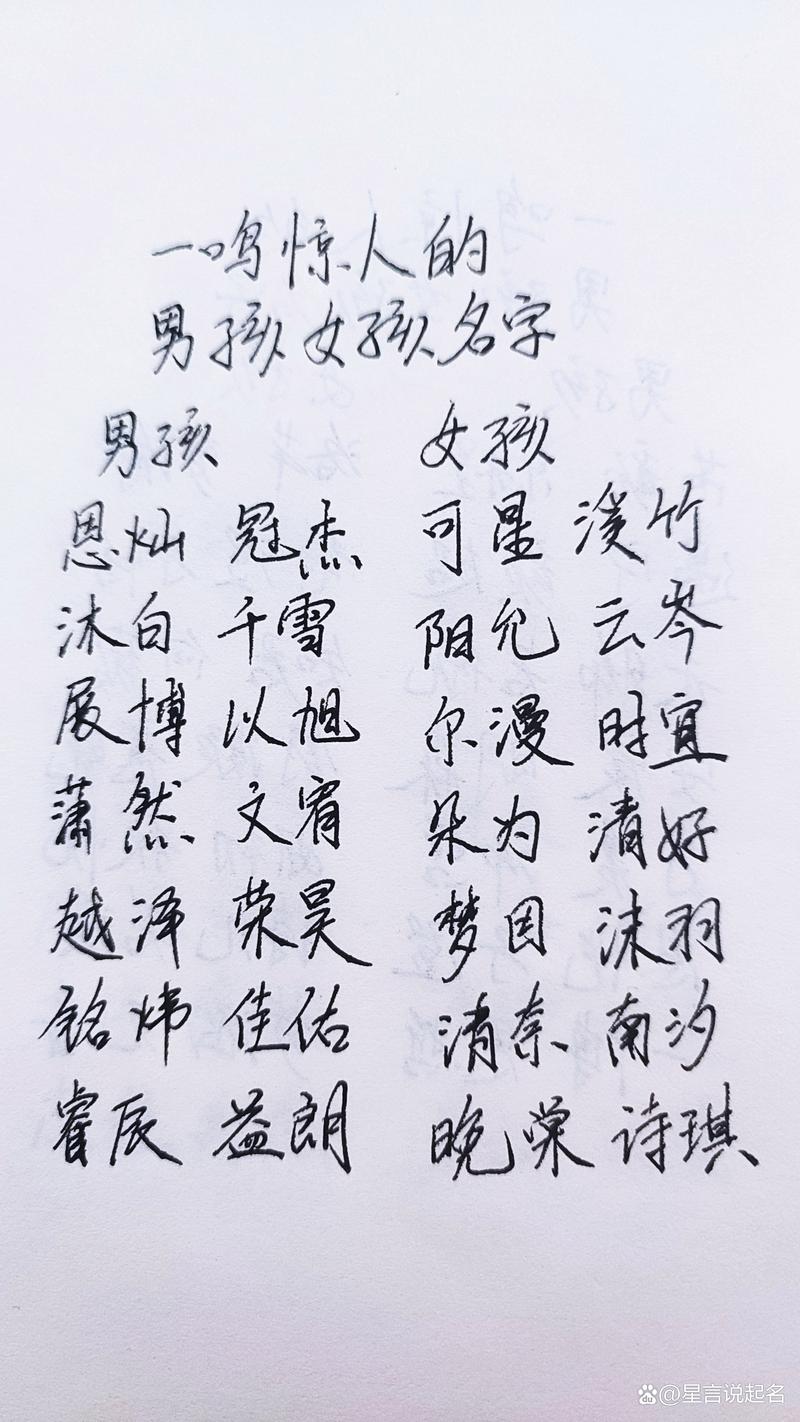 一鸣惊人的
男孩女孩名字
男孩 女孩
恩灿 冠杰 可星 溪竹
沐白 千雪 阳允 云岑
展博 以旭 尔漫 时宜
萧然 文宥 朵为 清好
越泽 荣昊 梦因 沫羽
铭炜 佳佑 清奈 南汐
睿辰 益朗 晚棠 诗琪
@星言说起名